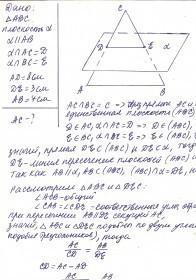 Дано:
△ABC
плоскость α
α∥AB
α∩AC=D
α∩BC=E
AD=8см
DE=3см
AB=4см
AC-?
C
D
E
α
A
B
AC∩BC=C → две прямые AC и
единственная плоскость (ABC)
D∈AC, α∩AC=D → D∈(ABC),
E∈BC, α∩BC=E → E∈(ABC),
значит, прямая DE⊂(ABC) и DE⊂α, тогда
DE-линия пересечения плоскостей (ABC) и
так как AB∥α, AB⊂(ABC), (ABC)∩α=DE,
Рассмотрим △ABC и △DEC:
∠ACB-общий
∠CAB=∠CDE-соответственные углы,
при пересечении AB∥DE секущей AC,
значит, △ABC и △DEC подобны по двум углам
подобия треугольников), тогда
AC/CD = AB/DE
CD=AC-AD
AC AB